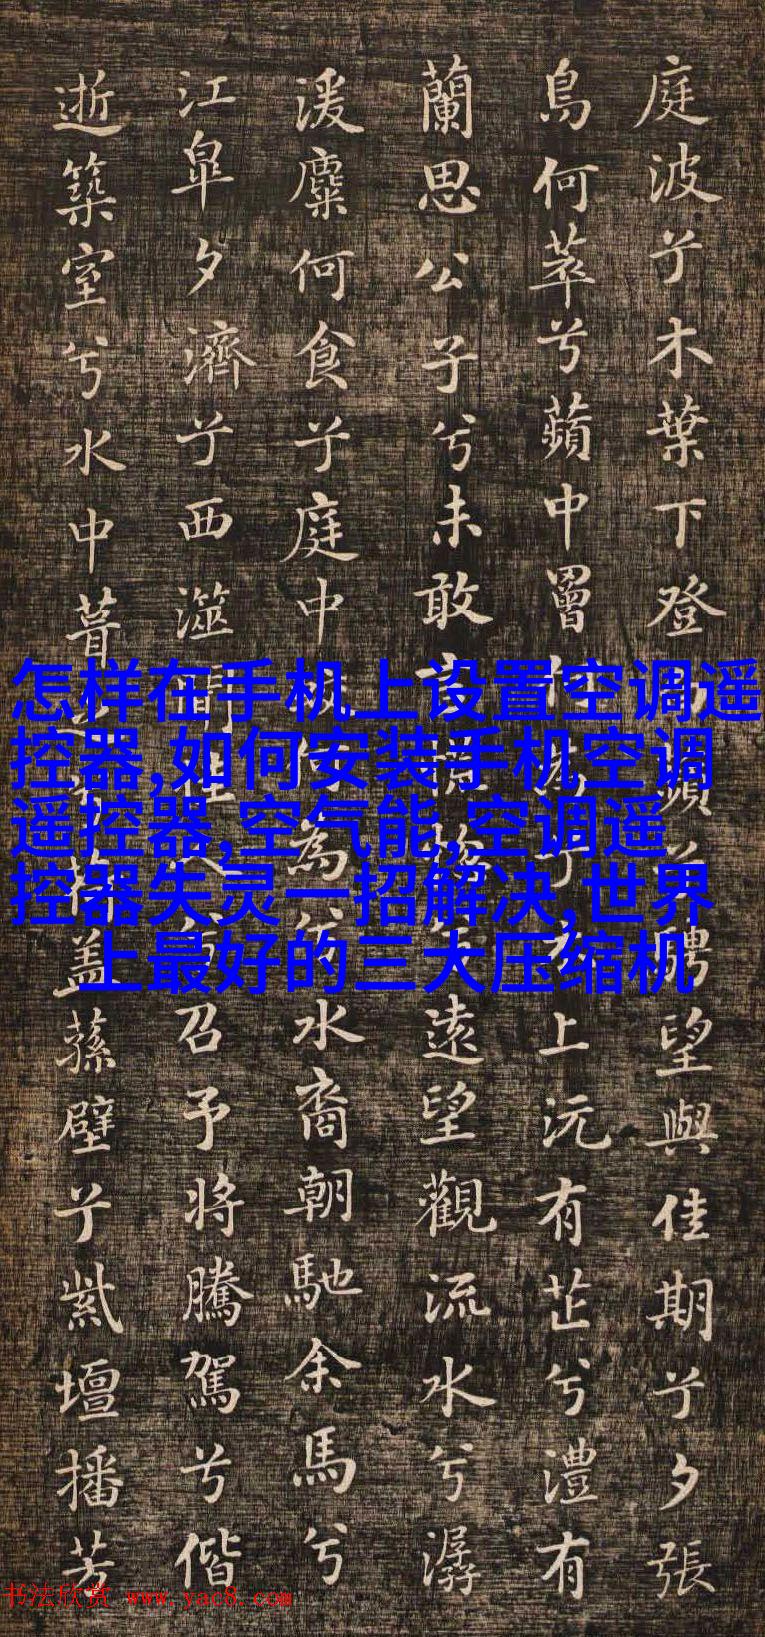 庭波兮木葉下登蘋騁望與佳期兮夕張
鳥何萃兮蘋中罾何上沅有芷兮澧有
蘭思公子兮未敢言遠望觀流水兮潺
湲麋何食兮庭中何為兮水裔朝馳余馬兮
江皋夕濟兮西澨聞佳人召予將騰駕兮偕
逝築室兮水中葺蓋蓀壁兮紫壇播芳
怎样在手机上设置空调遥
控器,如何安装手机空调
遥控器,空气能,空调遥
控器失灵一招解决,世界
上最好的三大压缩机
书法欣赏 www.yac8.com